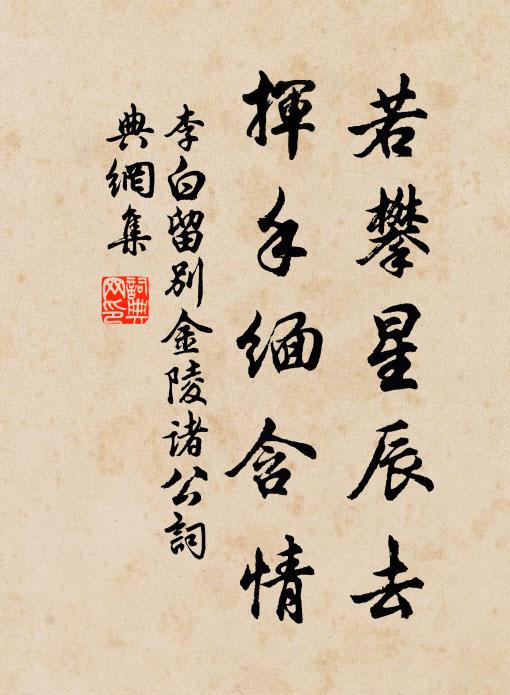 若攀星辰去
揮手緬含情
李白留別金陵諸公詞
典網集
詞典網印